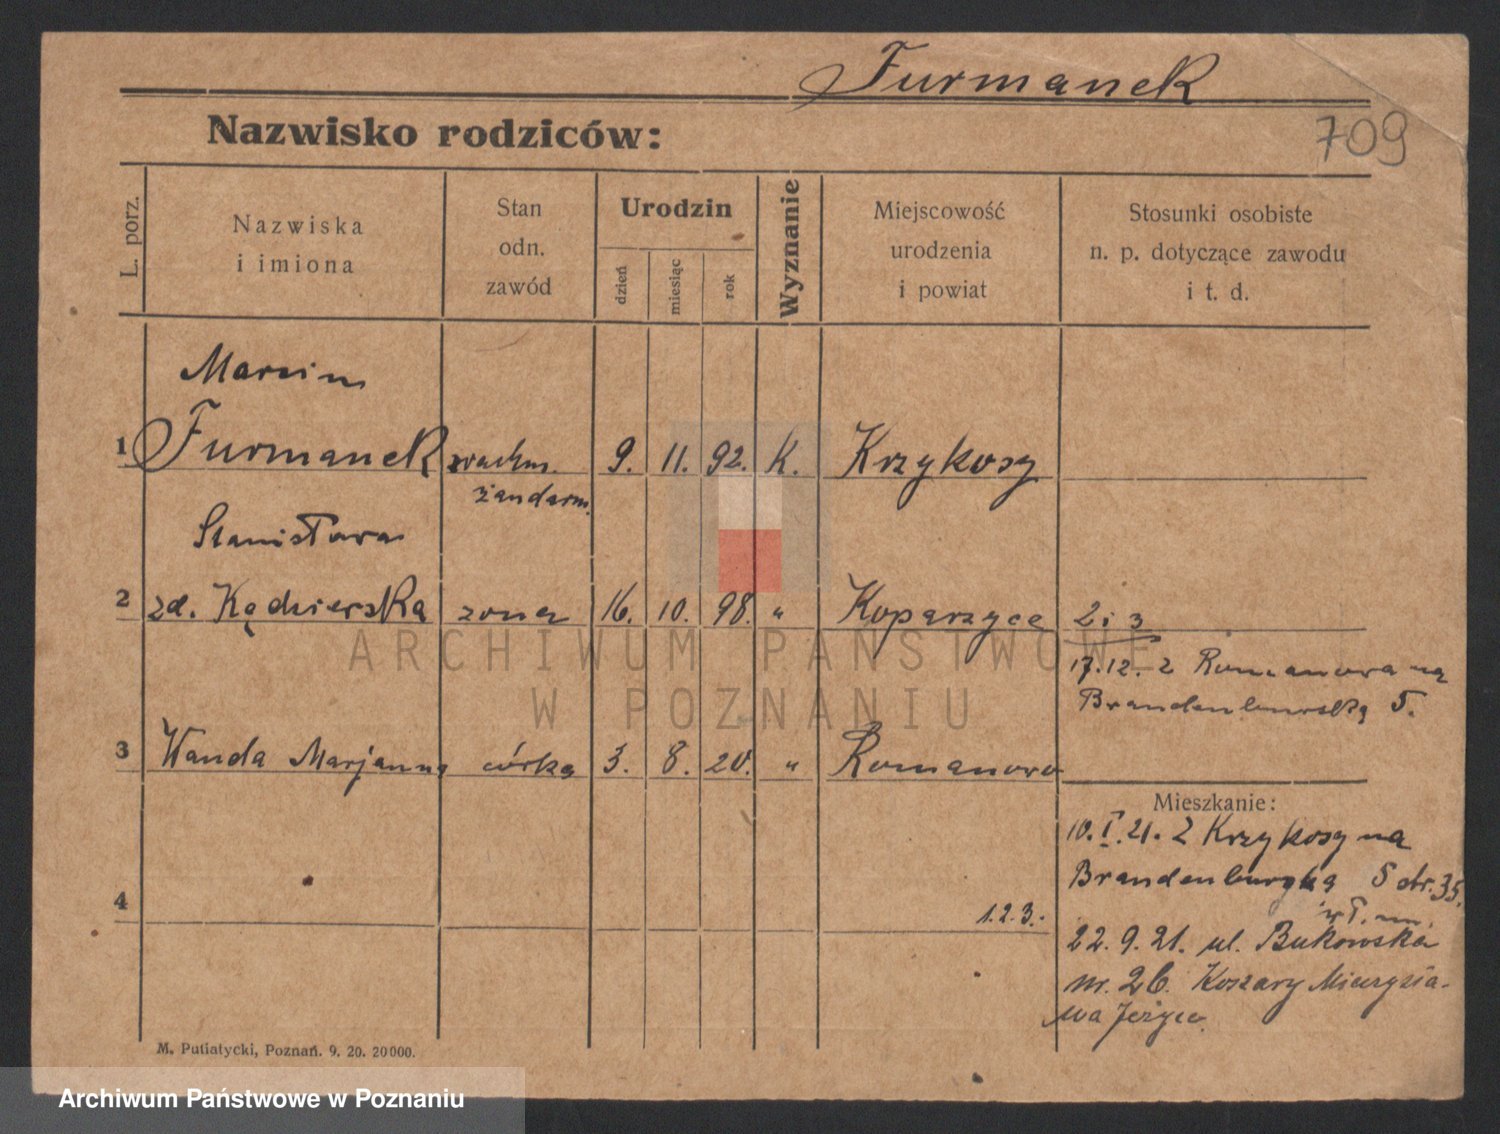 Furmanek
Nazwisko rodziców:
709
L. porz.
Nazwiska
i imiona
Stan
odn.
zawód
Urodzin
dzień
miesiąc
rok
Wyznanie
Miejscowość
urodzenia
i powiat
Stosunki osobiste
n. p. dotyczące zawodu
i t. d.
Marcin
1 Furmanek wachm. 9. 11. 92. K. Krzykosy
żandarm.
Stanisława
2 zd. Kędzierska żona 16. 10. 98. " Koparzyce 2 i 3
17.12. z Romanowa na
Brandenburską 5.
3 Wanda Marjanna córka 3. 8. 20. " Romanowo
Mieszkanie:
10. I. 21. z Krzykosy na
Brandenburską 5 dr. 35.
w T. m.
4 1.2.3.
22. 9. 21. ul. Bukowska
nr. 26. Koszary Mieczysła-
wa Jeżyce.
M. Putiatycki, Poznań. 9. 20. 20000.
ARCHIWUM PAŃSTWOWE
W POZNANIU
Archiwum Państwowe w Poznaniu